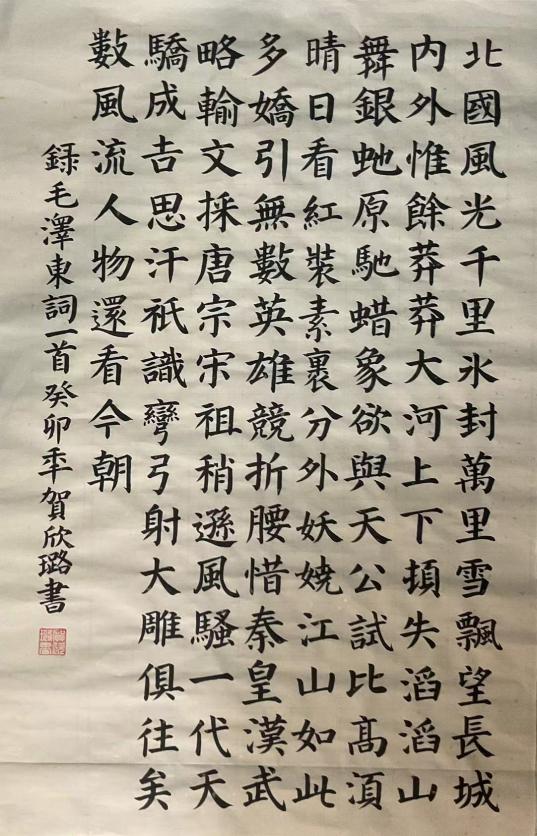 北國風光千里氷封萬里雪飄望長城
内外惟餘莽莽大河上下頓失滔滔山
舞銀虵原馳蜡象欲與天公試比髙湏
晴日看紅裝素裹分外妖嬈江山如此
多嬌引無數英雄競折腰惜秦皇漢武
略輸文採唐宗宋祖稍遜風騷一代天
驕成吉思汗祇識彎弓射大雕俱往矣
數風流人物還看今朝
録毛澤東詞一首癸卯年賀欣璐書